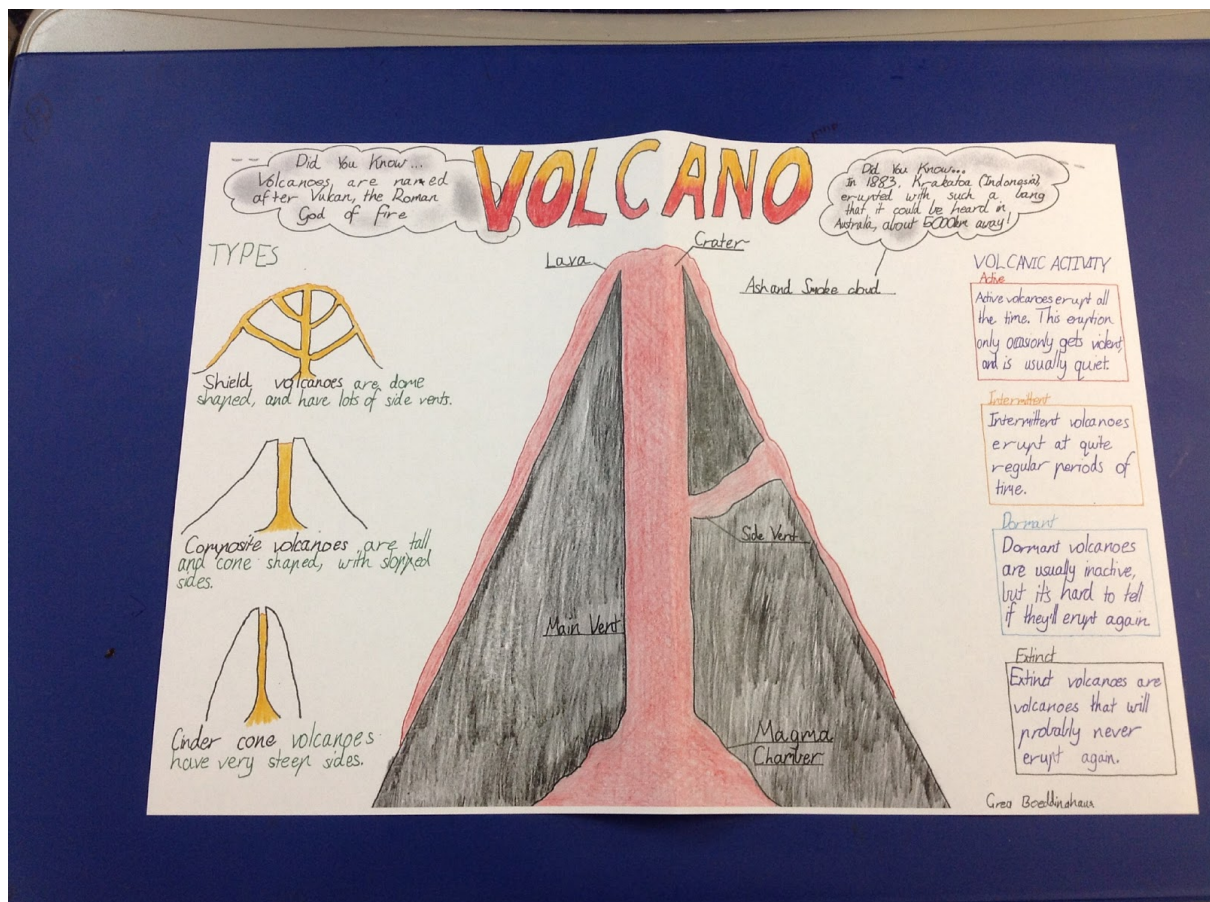 VOLCANO
Did You Know...
Volcanoes are named
after Vulcan, the Roman
God of fire
Did You Know...
In 1883, Krakatoa (Indonesia),
erupted with such a bang
that it could be heard in
Australia, about 5000km away!
TYPES
Shield volcanoes are dome
shaped, and have lots of side vents.
Composite volcanoes are tall
and cone shaped, with slopped
sides.
Cinder cone volcanoes
have very steep sides.
Lava
Crater
Ash and Smoke cloud
Side Vent
Main Vent
Magma
Chamber
VOLCANIC ACTIVITY
Active
Active volcanoes erupt all
the time. This eruption
only occasionly gets violent,
and is usually quiet.
Intermittent
Intermittent volcanoes
erupt at quite
regular periods of
time.
Dormant
Dormant volcanoes
are usually inactive,
but it's hard to tell
if they'll erupt again
Extinct
Extinct volcanoes are
volcanoes that will
probably never
erupt again.
Boeddinghaus